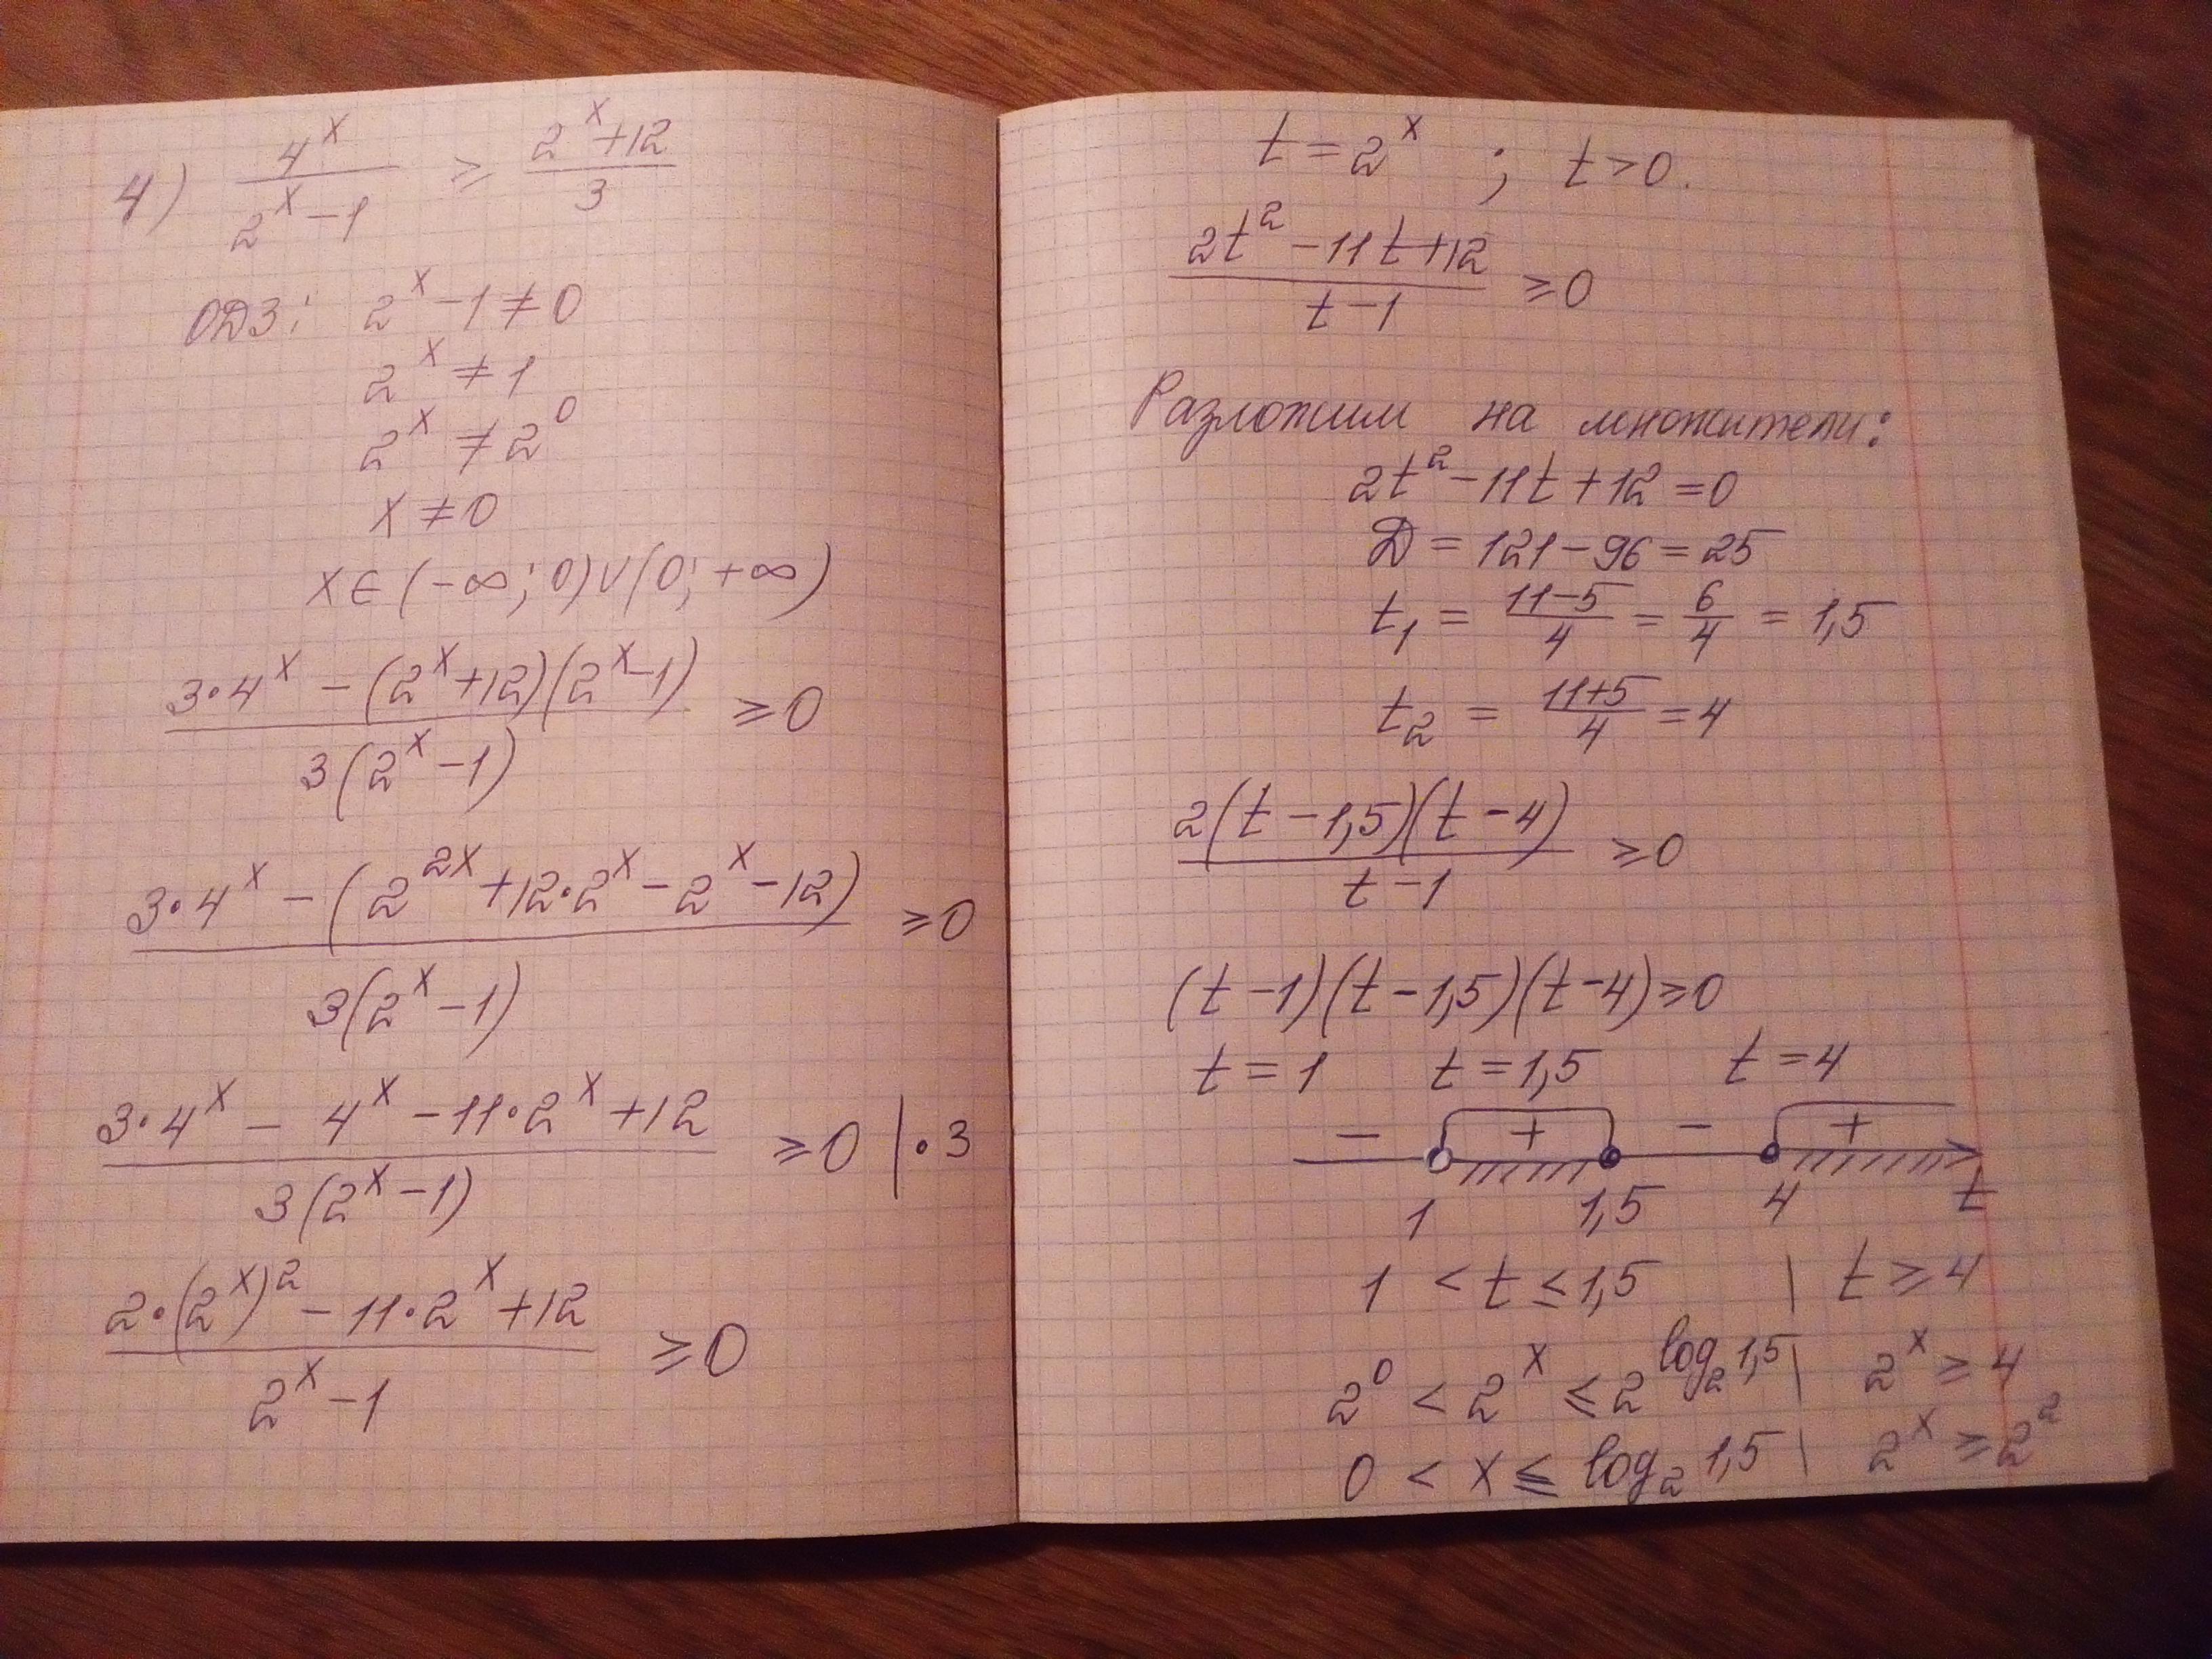 4) 4^x / (2^x - 1) ≥ (2^x + 12) / 3
ОДЗ: 2^x - 1 ≠ 0
2^x ≠ 1
2^x ≠ 2^0
x ≠ 0
x ∈ (-∞; 0) ∪ (0; +∞)
(3·4^x - (2^x + 12)(2^x - 1)) / (3(2^x - 1)) ≥ 0
(3·4^x - (2^(2x) + 12·2^x - 2^x - 12)) / (3(2^x - 1)) ≥ 0
(3·4^x - 4^x - 11·2^x + 12) / (3(2^x - 1)) ≥ 0 | ·3
(2·(2^x)^2 - 11·2^x + 12) / (2^x - 1) ≥ 0
t = 2^x ; t > 0.
(2t^2 - 11t + 12) / (t - 1) ≥ 0
Разложим на множители:
2t^2 - 11t + 12 = 0
D = 121 - 96 = 25
t_1 = (11 - 5) / 4 = 6/4 = 1,5
t_2 = (11 + 5) / 4 = 4
2(t - 1,5)(t - 4) / (t - 1) ≥ 0
(t - 1)(t - 1,5)(t - 4) ≥ 0
t = 1 t = 1,5 t = 4
- + - +
1 1,5 4 t
1 < t ≤ 1,5 | t ≥ 4
2^0 < 2^x ≤ 2^(log_2 1,5) | 2^x ≥ 4
0 < x ≤ log_2 1,5 | 2^x ≥ 2^2